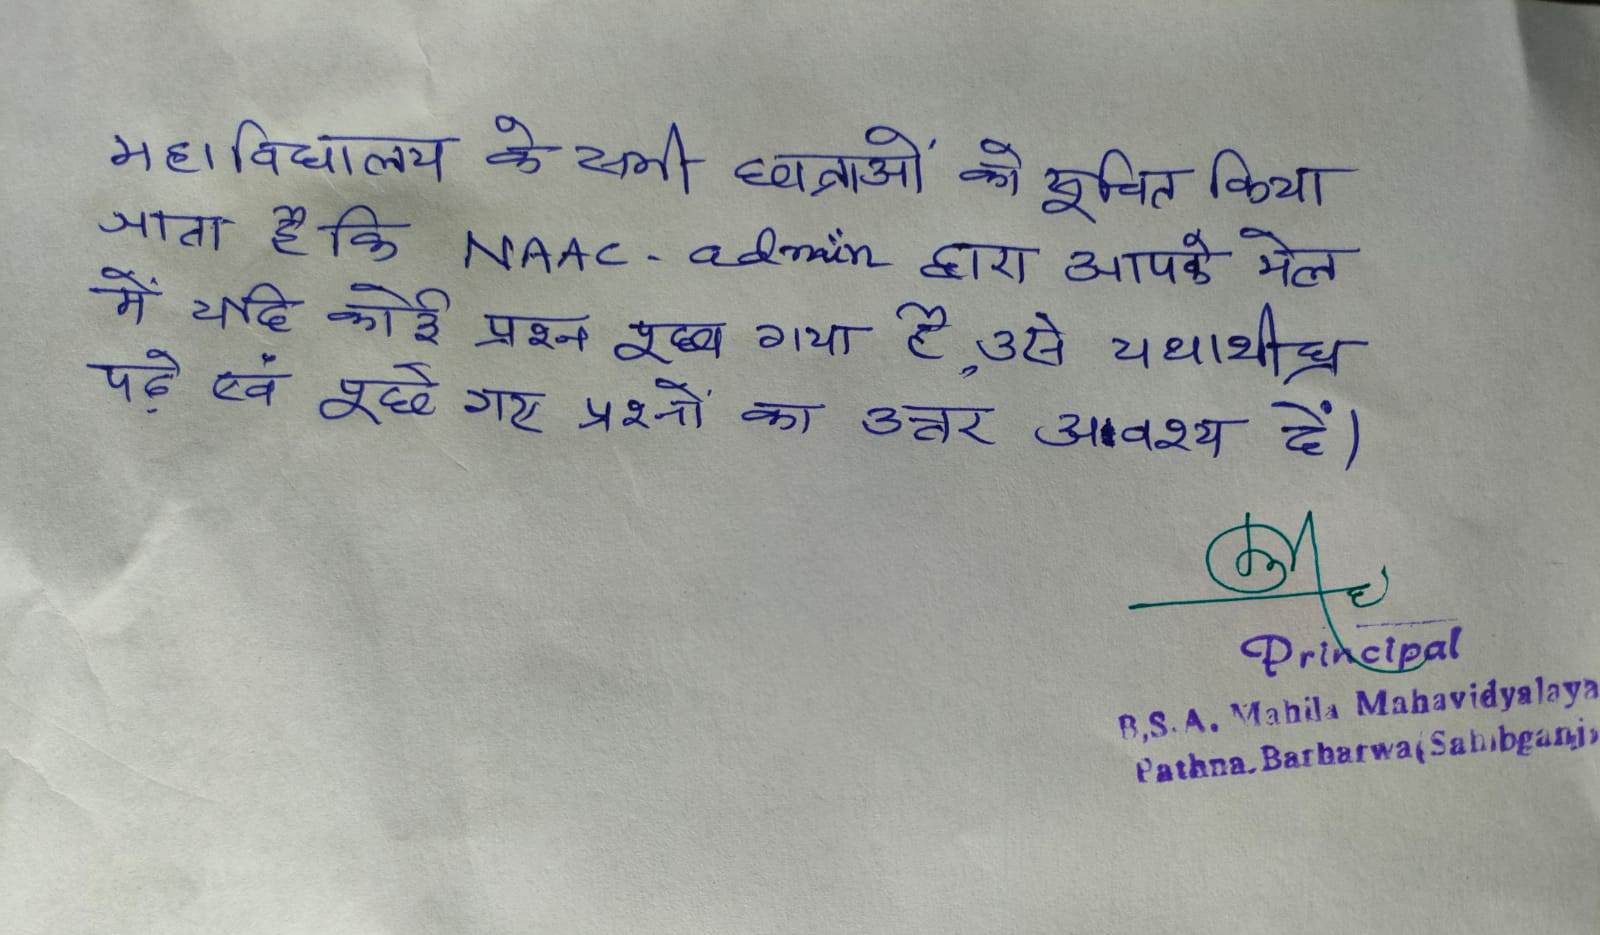 महाविद्यालय के सभी छात्राओं को सूचित किया
जाता है कि NAAC - admin द्वारा आपके मेल
में यदि कोई प्रश्न पूछा गया है, उसे यथाशीघ्र
पढ़े एवं पूछे गए प्रश्नों का उत्तर अवश्य दें।
Principal
B.S.A. Mahila Mahavidyalaya
Pathna, Barharwa (Sahibganj)